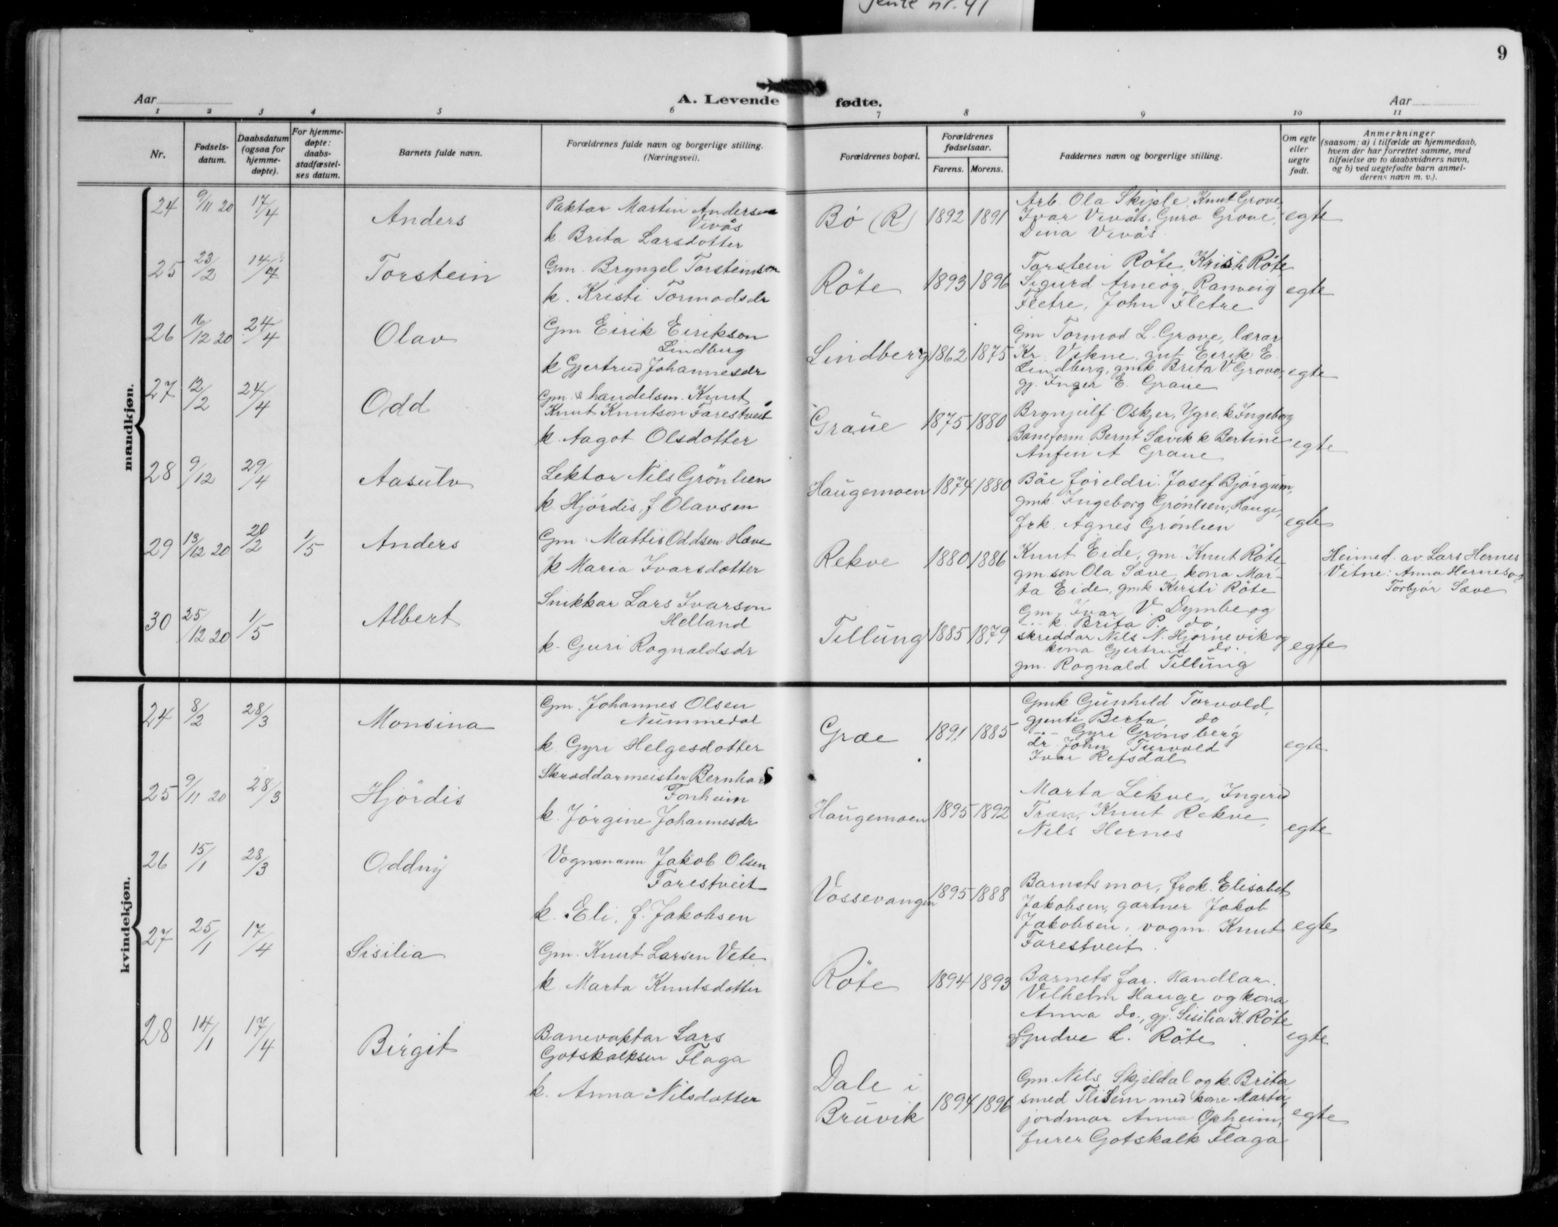 Jente nr. 41
9
Aar
A. Levende fødte.
Aar
1 2 3 4 5 6 7 8 9 10 11
Nr.
Fødsels-
datum.
Daabsdatum
(ogsaa for
hjemme-
døpte).
For hjemme-
døpte:
daabs-
stadfæstel-
ses datum.
Barnets fulde navn.
Forældrenes fulde navn og borgerlige stilling.
(Næringsvei).
Forældrenes bopæl.
Forældrenes
fødselsaar.
Farens. Morens.
Faddernes navn og borgerlige stilling.
Om egte
eller
uegte
født.
Anmerkninger
(saasom: a) i tilfælde av hjemmedaab,
hvem der har forrettet samme, med
tilføielse av to daabsvidners navn,
og b) ved uegtefødte barn anmel-
derens navn m. v.).
mandkjøn.
24 9/11 20 17/4 Anders
Paktar Martin Anderson
Vivås
k. Brita Larsdotter
Bø (R) 1892 1891
Arb. Ola Skiple, Knut Grove,
Ivar Vivås, Guro Grove,
Dina Vivås.
egte
25 23/2 14/4 Torstein
Gm. Bryngel Torsteinson
k. Kristi Tormodsdr
Röte 1893 1896
Torstein Röte, Krist. Röte
Sigurd Arne og Ranveig
Fletre, John Fletre
egte
26 16/12 20 24/4 Olav
Gm Eirik Eirikson
Lindberg
k Gjertrud Johannesdr
Lindberg 1862 1875
Gm Tormod L. Grove, lærar
Kr. Vikne, gut Eirik E.
Lindberg, gmk. Brita V Grove,
gj. Inger E. Graue
egte
27 12/2 24/4 Odd
Gm. & handelsm. Knut
Knut Knutson Farestveit
k Aagot Olsdotter
Graue 1875 1880
Brynjulf Oskjer, Ygre, k Ingeborg
Baneform Bernt Sævik k Bertine
Anfin A Graue
egte
28 9/12 29/4 Aasulv
Lektor Nils Grönlien
k. Hjördis, f Olavsen
Haugemoen 1874 1880
Båe foreldri, Josef Bjørgum,
gmk Ingeborg Grönlien, Hauge,
frk. Agnes Grönlien
egte
29 13/12 20 20/2 1/5 Anders
Gm. Mattis Oddsen Hæve
k Maria Ivarsdotter
Rekve 1880 1886
Knut Eide, gm. Knut Röte,
gm son Ola Sæve, kona Mar-
ta Eide, gmk. Kirsti Röte
Heimed. av Lars Hernes
Vitne: Anna Hernes og
Torbjør Sæve
30 25/12 20 1/5 Albert
Snikkar Lars Ivarson
Helland
k. Guri Rognaldsdr
Tillung 1885 1879
Gm. Ivar V. Dymbe og
k. Brita P. do,
skreddar Nils N. Hjørnevik og
kona Gjertrud do.
gm. Rognald Tillung
egte
kvindekjøn.
24 8/2 28/3 Monsina
Gm. Johannes Olsen
Nummedal
k. Gyri Helgesdotter
Græe 1891 1885
Gmk Gunhild Torvold,
gjente Berta do
Gyri Grönsberg
dr John Turvold
Ivar Refsdal
egte
25 9/11 20 28/3 Hjördis
Skræddarmeister Bernhard
Fonheim
k. Jörgine Johannesdr
Haugemoen 1895 1892
Marta Lekve, Ingerid
Træn, Knut Rekve,
Nils Hernes
egte
26 15/1 28/3 Oddny
Vognmann Jakob Olsen
Farestveit
k. Eli, f. Jakobsen
Vossevangen 1895 1888
Barnets mor, frøk. Elisabet
Jakobsen, gartner Jakob
Jakobsen, vogm. Knut
Farestveit.
egte
27 25/1 17/4 Sisilia
Gm. Knut Larsen Vete
k Marta Knutsdotter
Röte 1894 1893
Barnets far. Handlar.
Vilhelm Hauge og kona
Anna do., gj. Sisilia K. Röte
Gudve L. Röte
egte
28 14/1 17/4 Birgit
Banevaktar Lars
Gotskalksen Flaga
k. Anna Nilsdotter
Dale i
Bruvik 1894 1896
Gm Nils Skjeldal og k. Brita,
smed med kone Marta,
jordmor Anna Opheim,
furer Gotskalk Flaga
egte